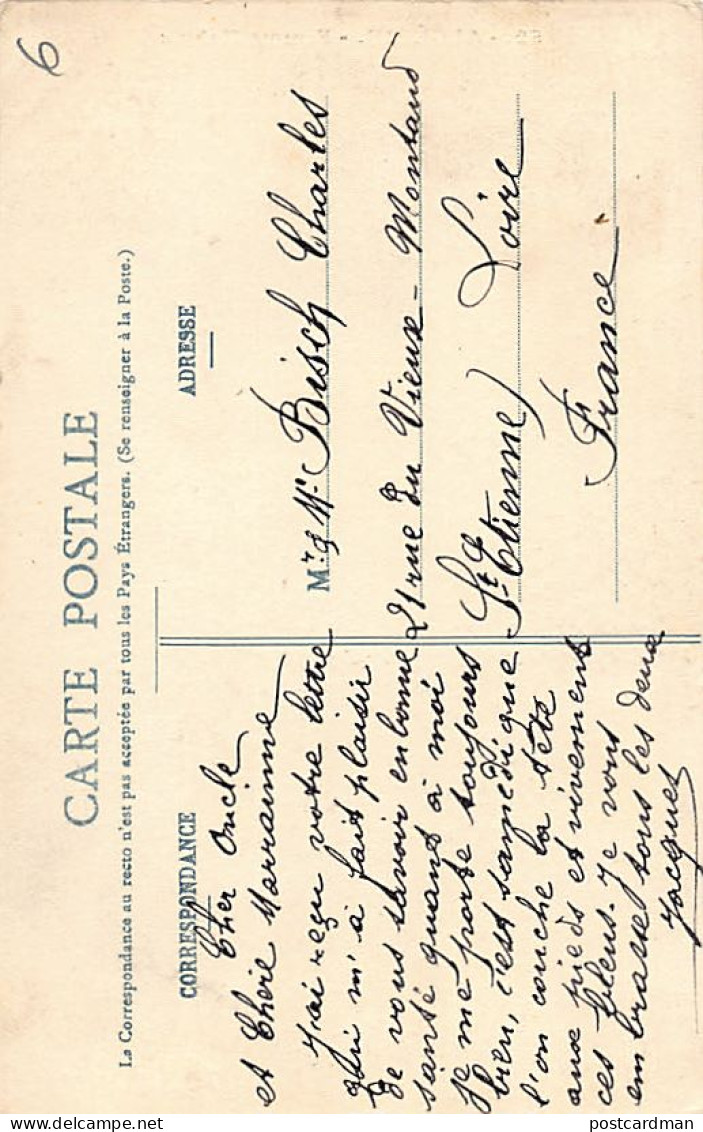 6
CARTE POSTALE
La Correspondance au recto n'est pas acceptée par tous les Pays Étrangers. (Se renseigner à la Poste.)
CORRESPONDANCE
Cher Oncle
et Chère Marrainne
J'ai reçu votre lettre
qui m'à fait plaisir
de vous savoir en bonne
santé quant à moi
je me porte toujours
bien, c'est samedi que
l'on couche la tête
aux pieds et vivement
ces bleus. Je vous
embrasse tous les deux
Jacques
ADRESSE
Mr & Me Bisch Charles
21 rue du Vieux-Montaud
St Etienne) Loire
France
postcardman